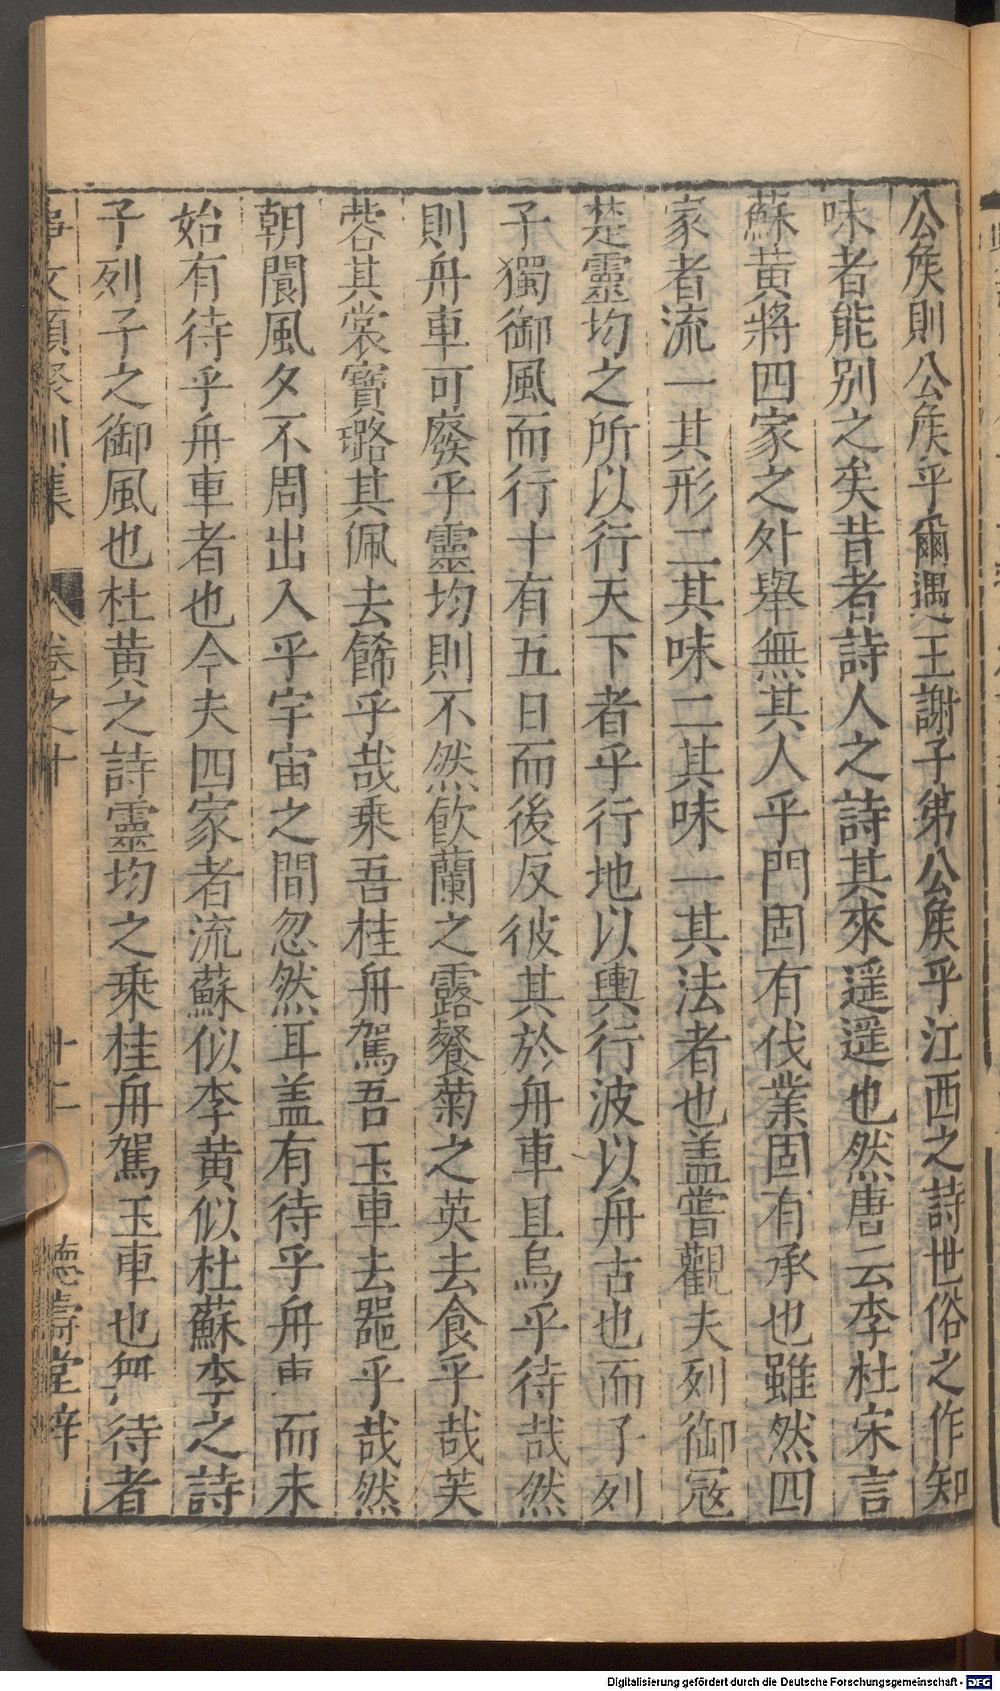 公矦則公矦乎爾遇王謝子弟公矦乎江西之詩世俗之作知
味者能别之矣昔者詩人之詩其來遥遥也然唐云李杜宋言
蘇黄將四家之外舉無其人乎門固有伐業固有承也雖然四
家者流一其形二其味二其味一其法者也盖嘗觀夫列御冦
楚靈均之所以行天下者乎行地以輿行波以舟古也而子列
子獨御風而行十有五日而後反彼其於舟車且烏乎待哉然
則舟車可廢乎靈均則不然飲蘭之露餐菊之英去食乎哉芙
蓉其裳寶璐其佩去飾乎哉乗吾桂舟駕吾玉車去噐乎哉然
朝閬風夕不周出入乎宇宙之間忽然耳盖有待乎舟車而未
始有待乎舟車者也今夫四家者流蘇似李黄似杜蘇李之詩
子列子之御風也杜黄之詩靈均之乗桂舟駕玉車也無待者
事文類聚別集 卷之十 十二 德壽堂梓
Digitalisierung gefördert durch die Deutsche Forschungsgemeinschaft - DFG